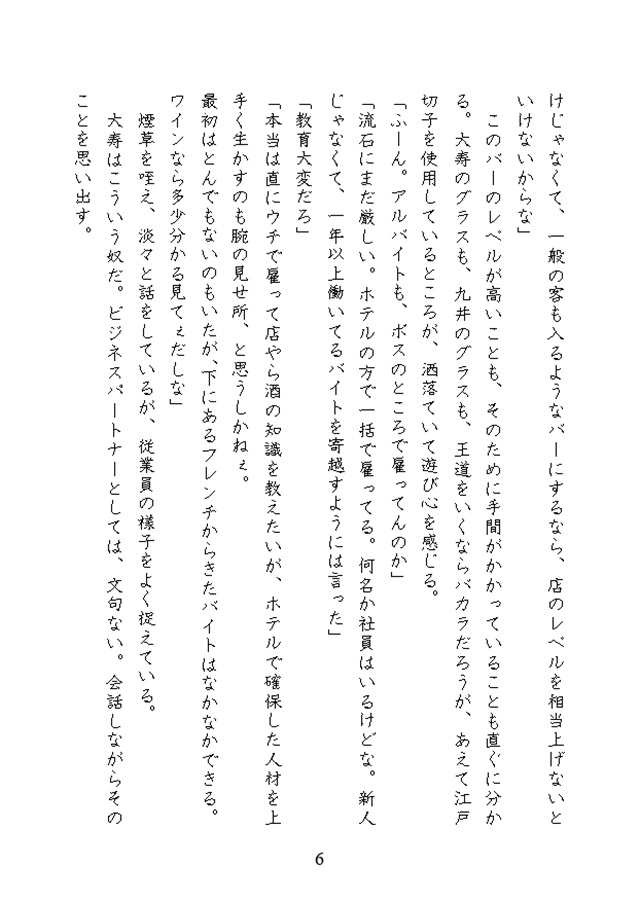 けじゃなくて、一般の客も入るようなバーにするなら、店のレベルを相当上げないと
いけないからな」
このバーのレベルが高いことも、そのために手間がかかっていることも直ぐに分か
る。大寿のグラスも、九井のグラスも、王道をいくならバカラだろうが、あえて江戸
切子を使用しているところが、洒落ていて遊び心を感じる。
「ふーん。アルバイトも、ボスのところで雇ってんのか」
「流石にまだ厳しい。ホテルの方で一括で雇ってる。何名か社員はいるけどな。新人
じゃなくて、一年以上働いてるバイトを寄越すようには言った」
「教育大変だろ」
「本当は直にウチで雇って店やら酒の知識を教えたいが、ホテルで確保した人材を上
手く生かすのも腕の見せ所、と思うしかねぇ。
最初はとんでもないのもいたが、下にあるフレンチからきたバイトはなかなかできる。
ワインなら多少分かる見てぇだしな」
煙草を咥え、淡々と話をしているが、従業員の様子をよく捉えている。
大寿はこういう奴だ。ビジネスパートナーとしては、文句ない。会話しながらその
ことを思い出す。
6